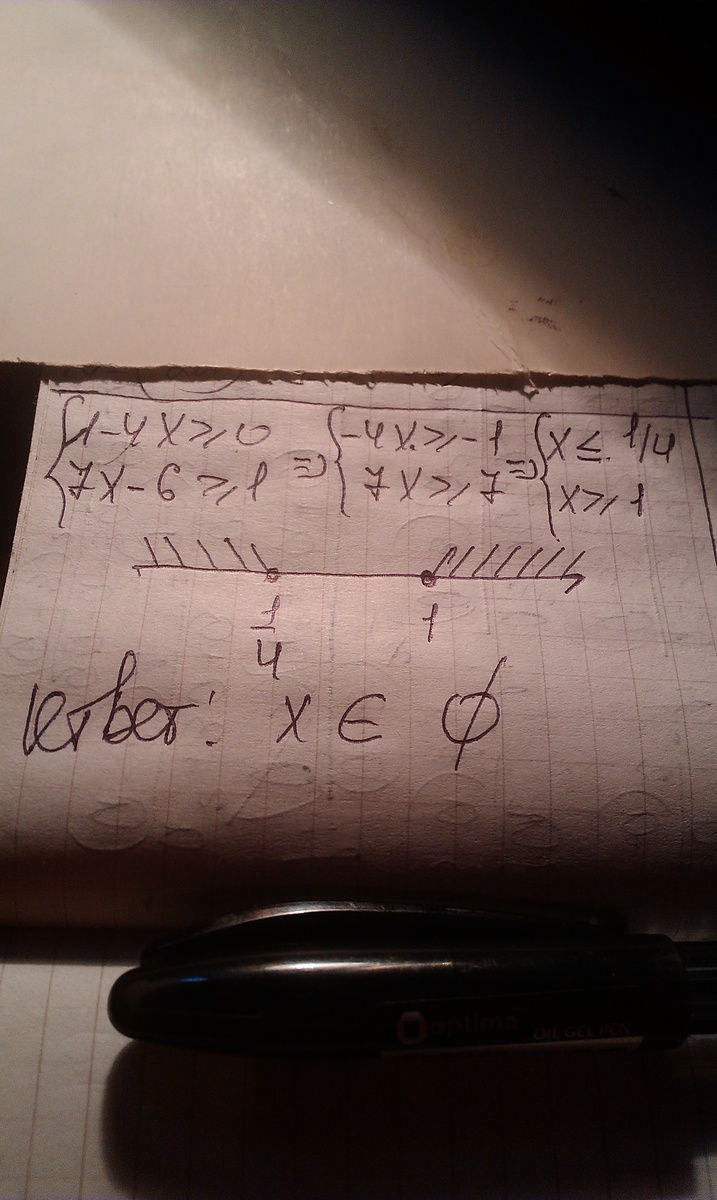 {1-4x≥0 ⇒ {-4x≥-1 ⇒ {x≤1/4
{7x-6≥1 {7x≥7 {x≥1
1/4 1
Ответ: x ∈ ∅
optima OIL GEL PEN